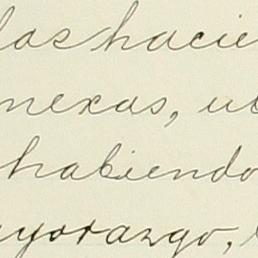 las hacie
nexas, ub
habiendo
yorazgo,